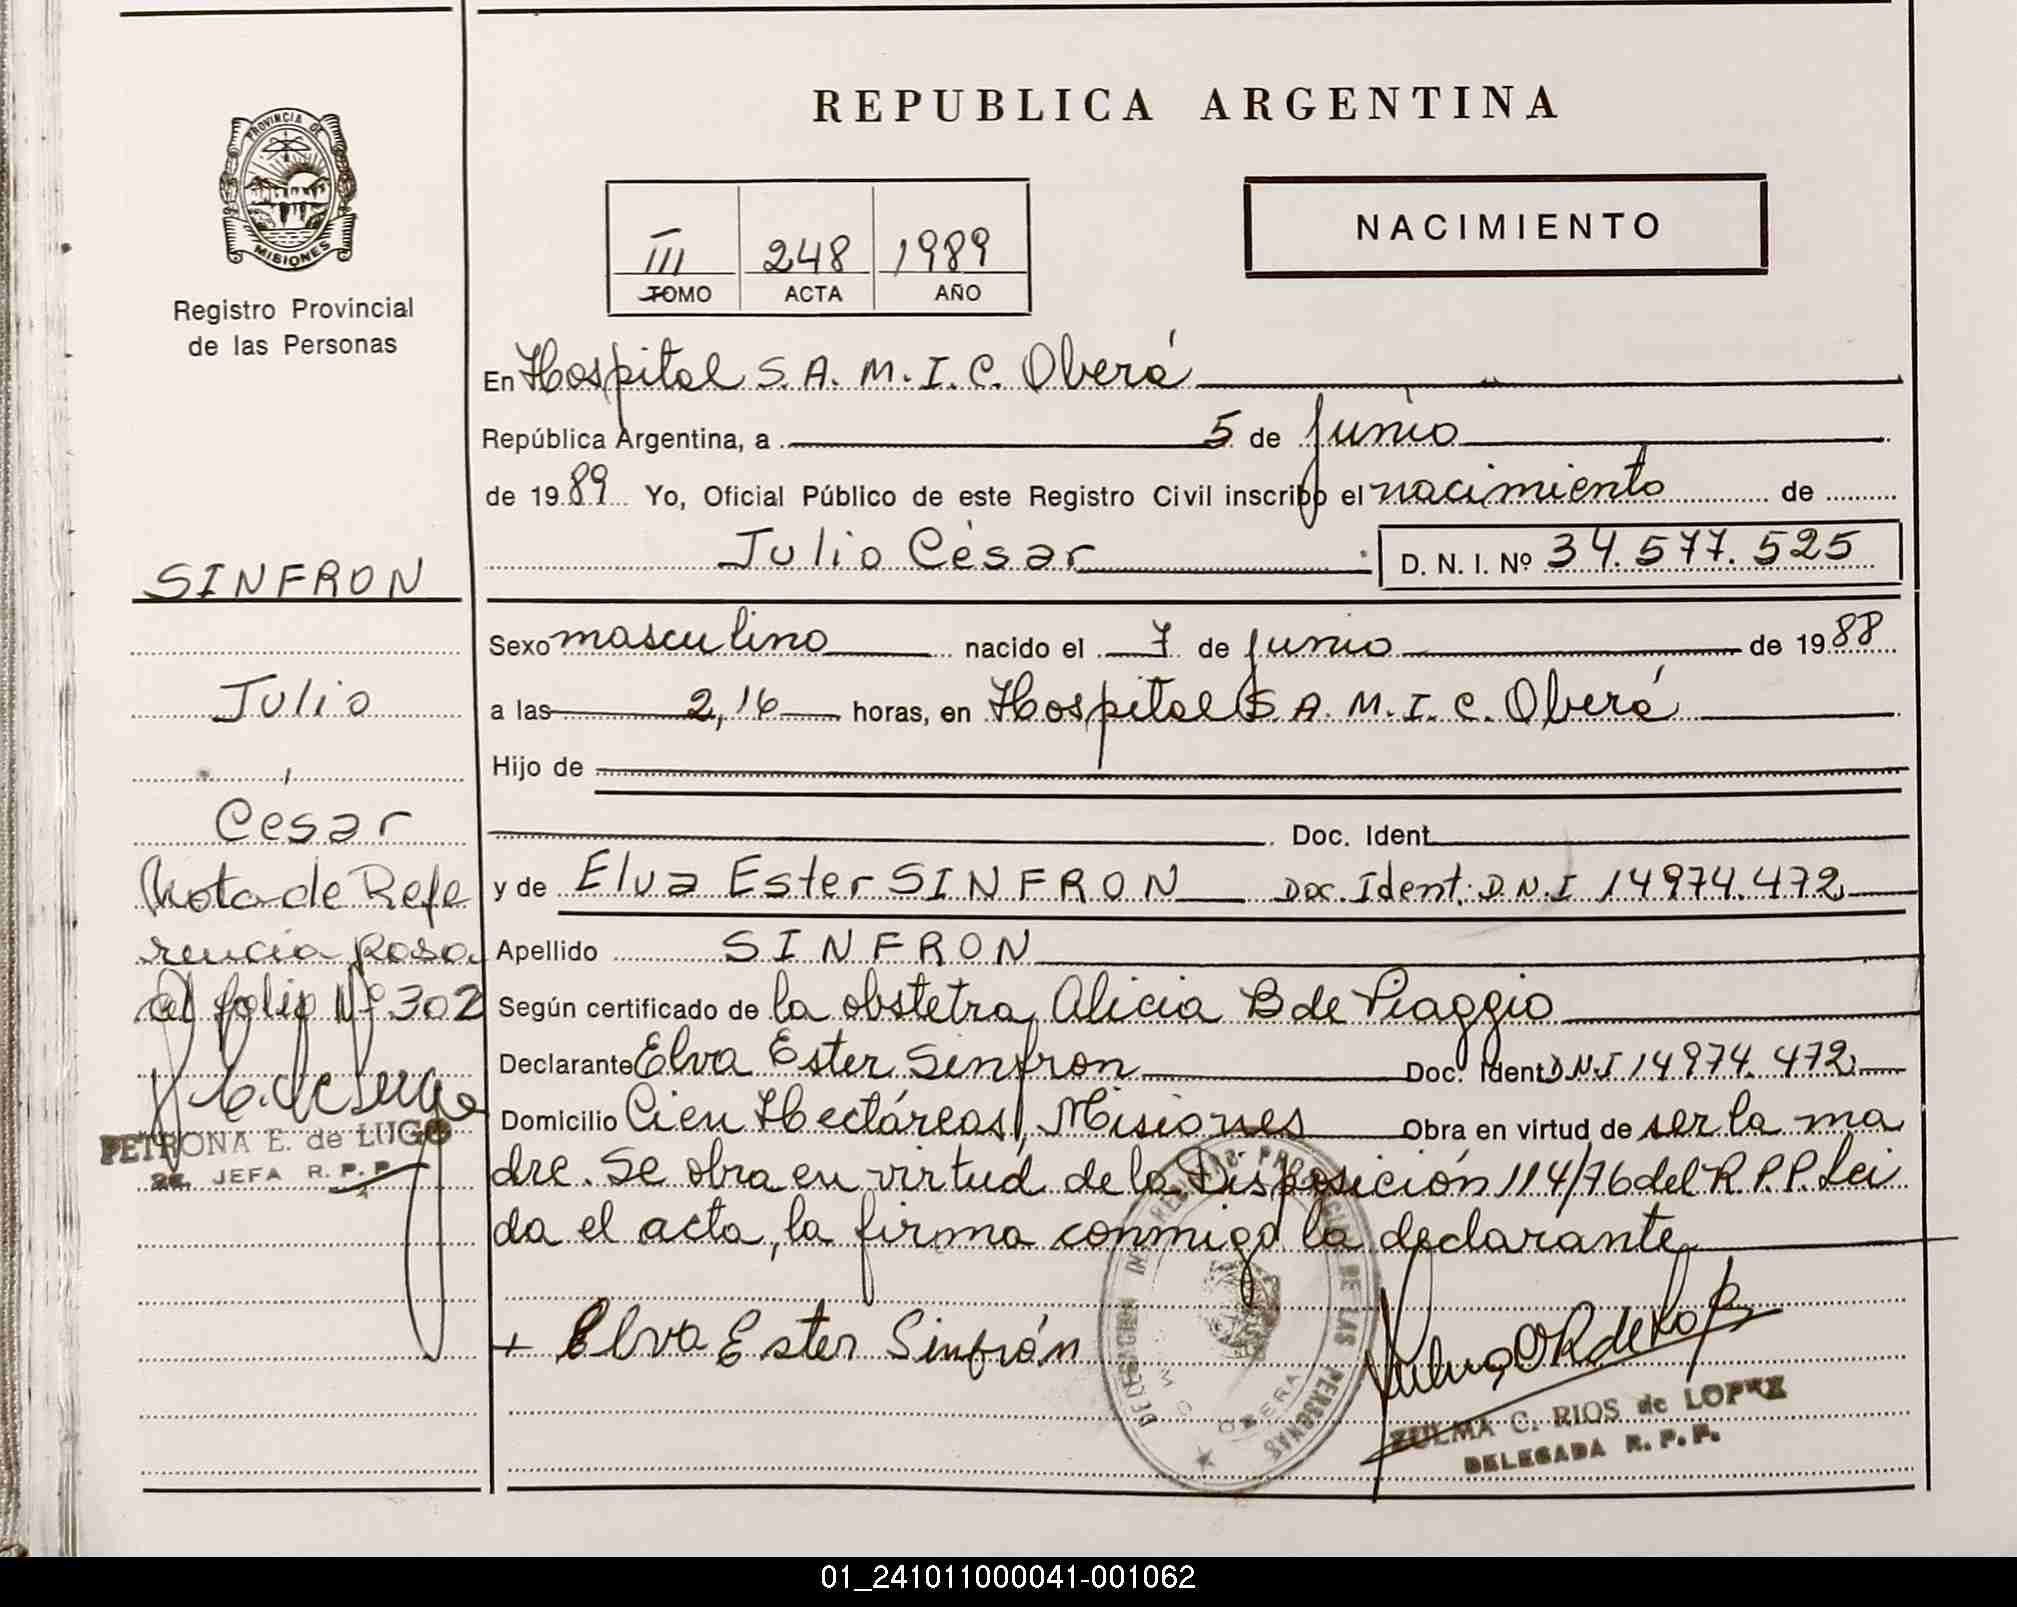 REPUBLICA ARGENTINA
PROVINCIA DE
MISIONES
Registro Provincial
de las Personas
NACIMIENTO
III 248 1989
TOMO ACTA AÑO
En Hospital S.A.M.I.C. Oberá
República Argentina, a 5 de junio
de 1989 Yo, Oficial Público de este Registro Civil inscribo el nacimiento de
Julio César D. N. I. Nº 34.577.525
SINFRON
Julio
César
Nota de Refe
rencia pasa
al folio Nº 302
PETRONA E. de LUGO
2a. JEFA R.P.P.
Sexo masculino nacido el 7 de junio de 1988
a las 2,16 horas, en Hospital S.A.M.I.C. Oberá
Hijo de
Doc. Ident.
y de Elva Ester SINFRON Doc. Ident: D.N.I 14974.472
Apellido SINFRON
Según certificado de la obstetra, Alicia B de Piaggio
Declarante Elva Ester Sinfron Doc. Ident D.N.I 14974.472
Domicilio Cien Hectáreas, Misiones Obra en virtud de ser la ma
dre. Se obra en virtud de la Disposición 114/76 del R.P.P. Lei
da el acta, la firma conmigo la declarante
+ Elva Ester Sinfrón
REGISTRO PROVINCIAL DE LAS PERSONAS
DELEGACION
OBERA
ZULMA C. RIOS de LOPEZ
DELEGADA R.P.P.
01_241011000041-001062